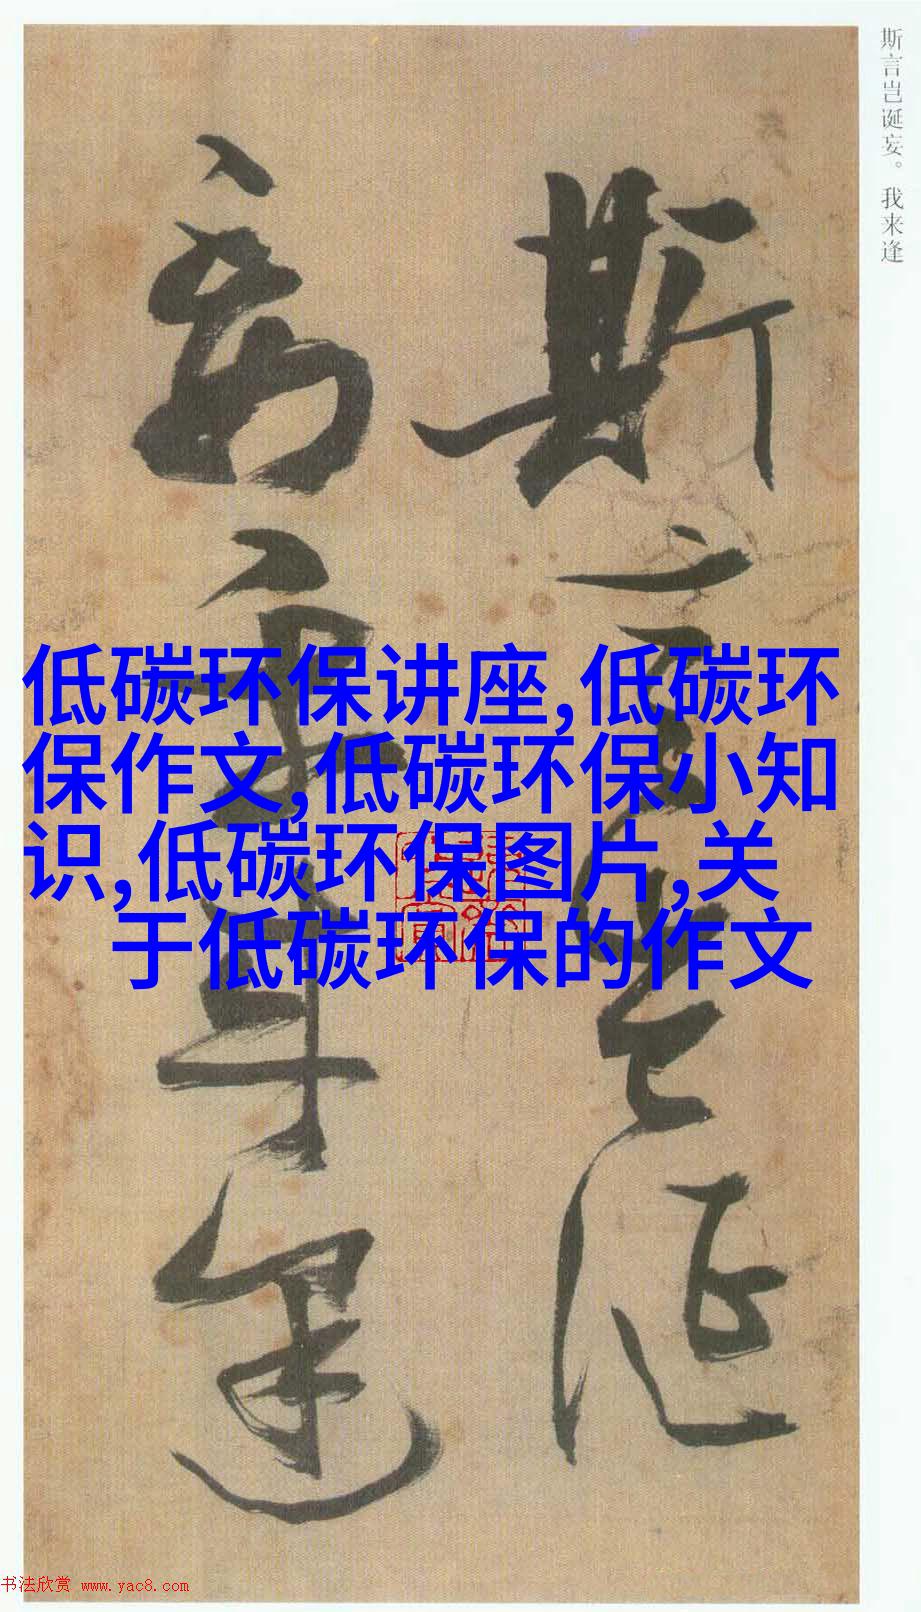 斯言岂诞妄。我来逢
斯言岂诞
妄我来逢
低碳环保讲座,低碳环
保作文,低碳环保小知
识,低碳环保图片,关
于低碳环保的作文
书法欣赏 www.yac8.com